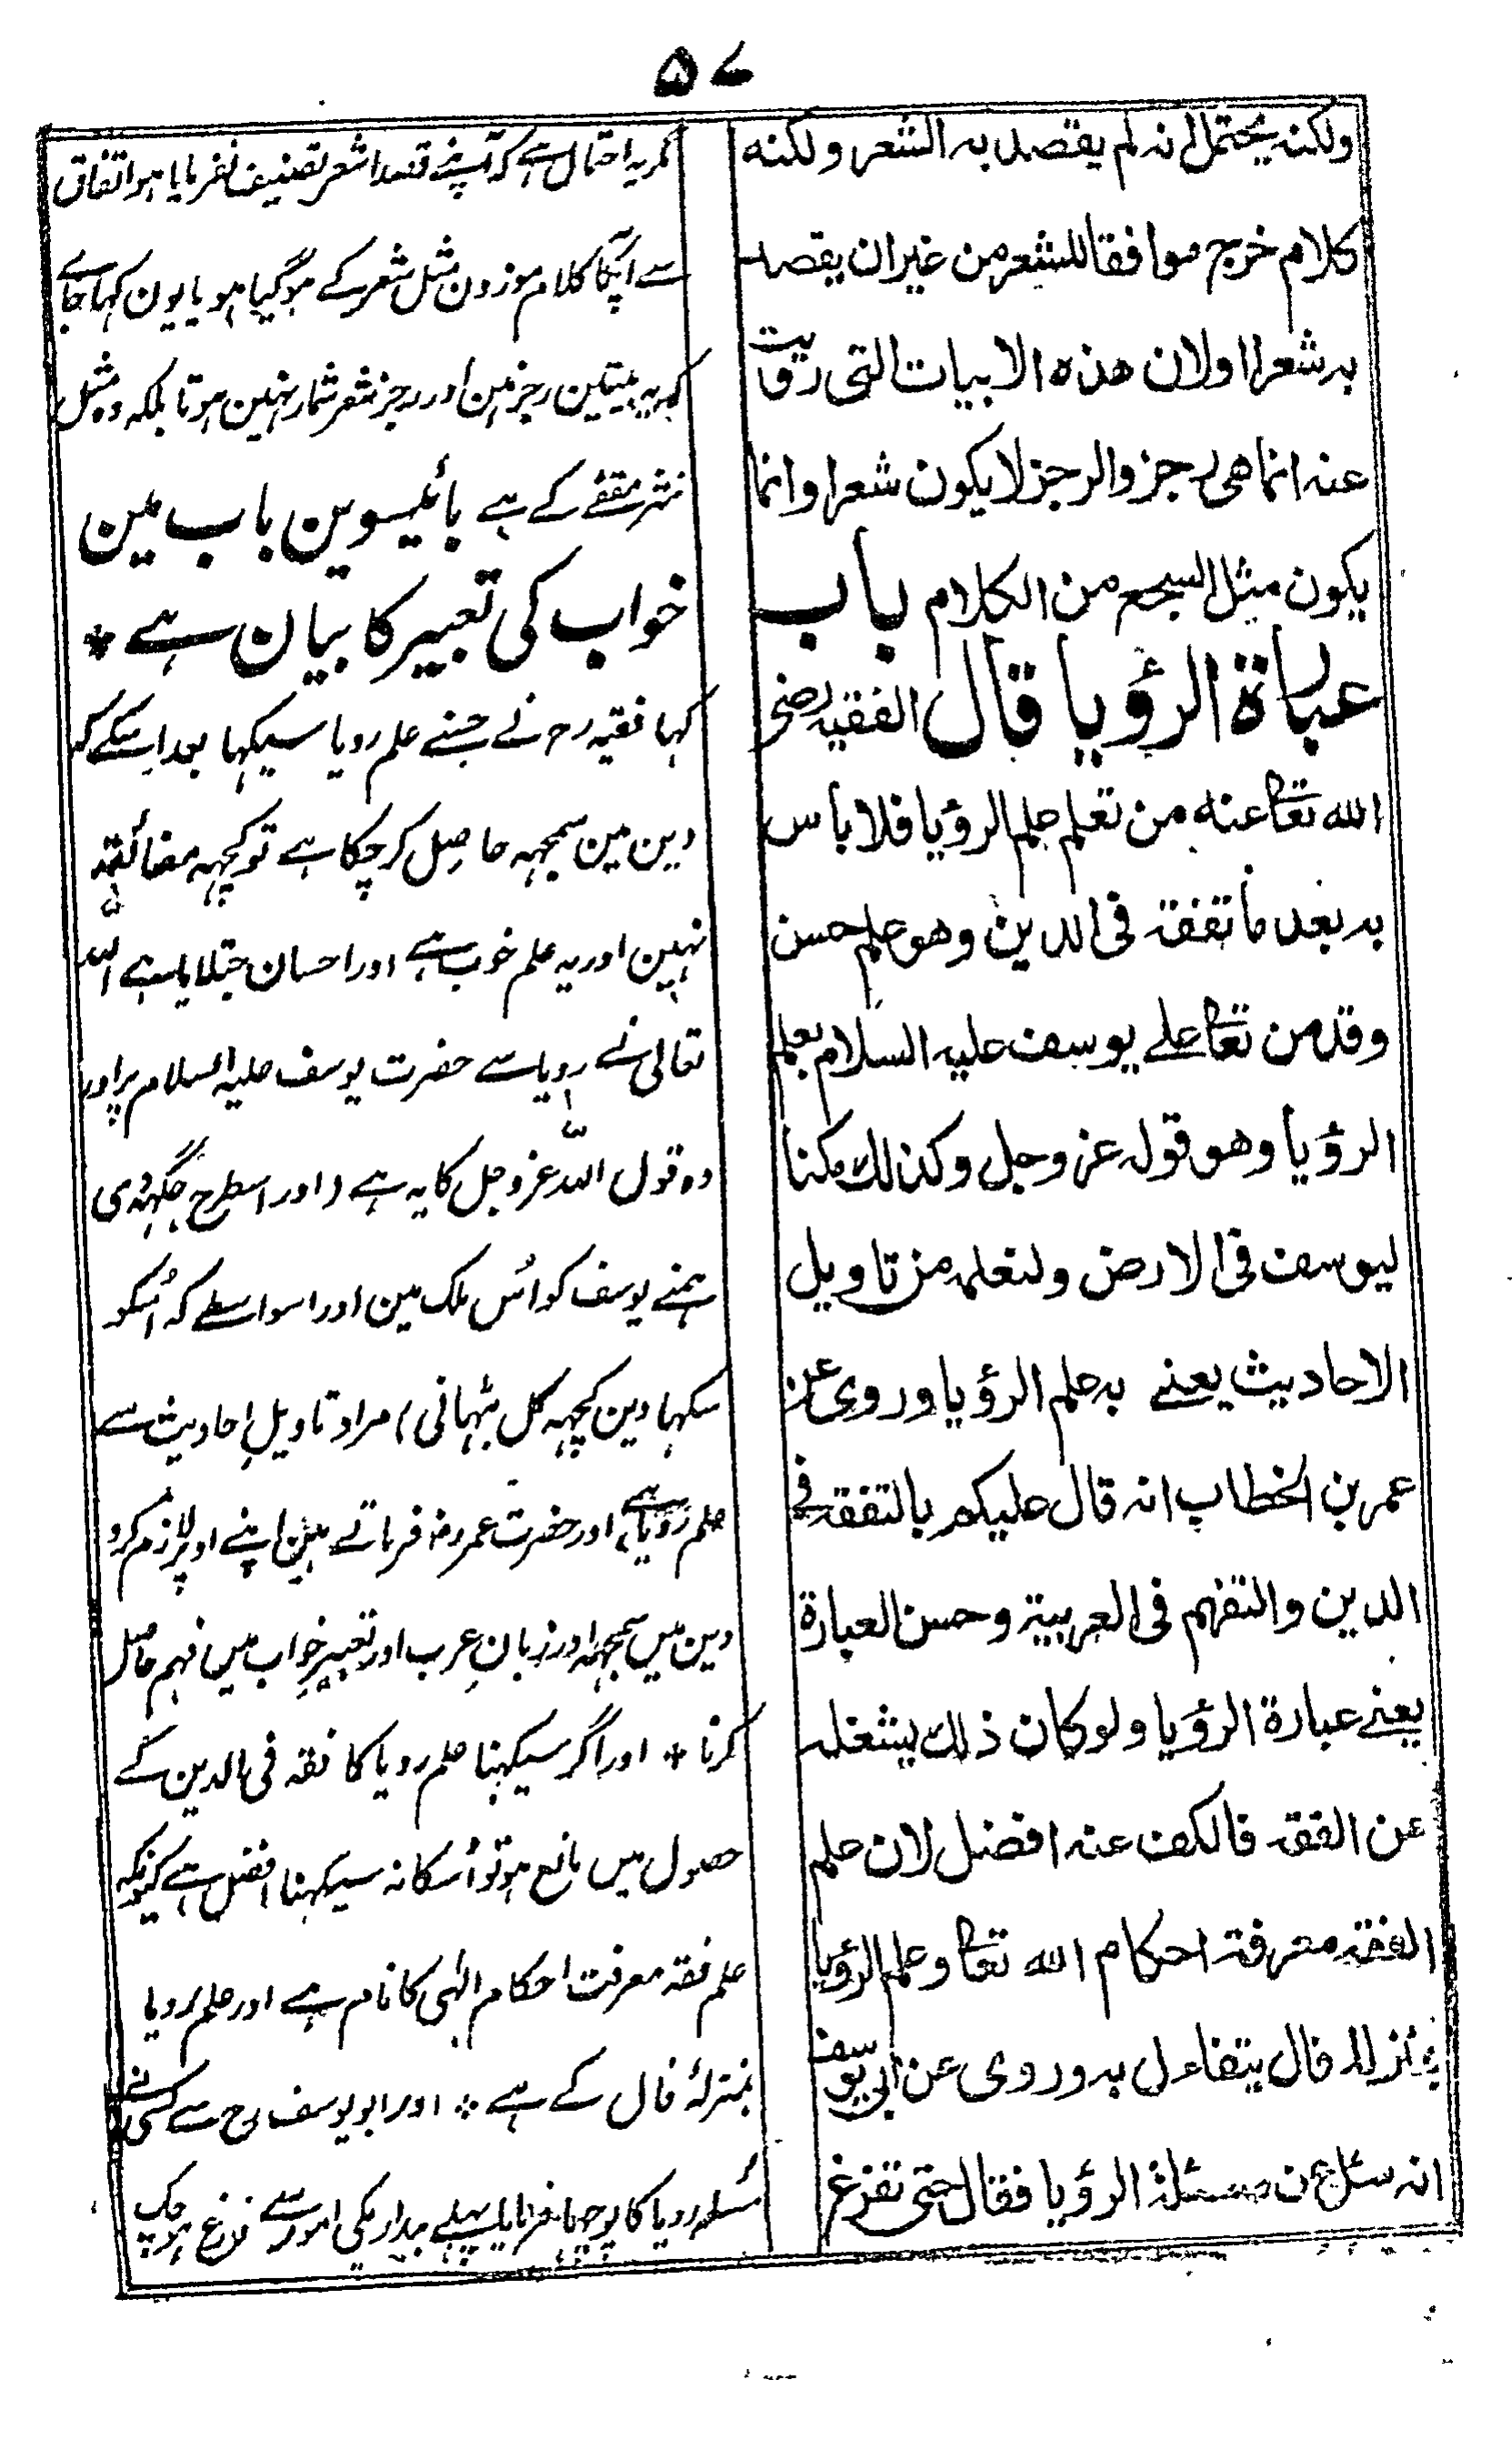 ۵۷
ولكنه يحتمل انه لم يقصد به الشعر ولكنه
كلام خرج موافقا للشعر من غير ان يقصد
به شعرا اولان هذه الابيات التى رويت
عنه انما هى رجز والرجز لا يكون شعرا وانما
يكون مثل السجع من الكلام باب
عبارة الرؤيا قال الفقيه رضى
الله تعا عنه من تعلم علم الرؤيا فلا باس
به بعد ما تفقه فى الدين وهو علم حسن
وقد من تعا على يوسف عليه السلام بعلم
الرؤيا وهو قوله عز وجل وكذلك مكنا
ليوسف فى الارض ولنعلمه من تاويل
الاحاديث يعنے به علم الرؤيا وروى عن
عمر بن الخطاب انه قال عليكم بالتفقه فے
الدين والتفهم فى العربية وحسن العبارة
يعنے عبارة الرؤيا ولو كان ذلك يشغله
عن الفقه فالكف عنه افضل لان علم
الفقه معرفة احكام الله تعا وعلم الرؤيا
بمنزلة فال يتفاءل به وروى عن ابى يوسف
انه سئل عن مسئلة الرؤيا فقال حتى تفرغ
مگر یہ احتمال ہے کہ آپنے قصدا شعر تصنیف نفرمایا ہو اتفاق
سے اپکا کلام موزون مثل شعر کے ہو گیا ہو یا یون کہا جاے
کہ یہ بیتین رجز ہین اور رجز شعر شمار نہین ہوتا بلکہ وہ مثل
نثر مقفے کے ہے بائیسوین باب مین
خواب کی تعبیر کا بیان ہے *
کہا فقیہ رح نے جسنے علم رویا سیکہا بعد اسکے کہ
دین مین سمجہہ حاصل کر چکا ہے تو کچہہ مضائقہ
نہین اور یہ علم خوب ہے اور احسان جتلایا ہے اللہ
تعالی نے رویا سے حضرت یوسف علیہ السلام پر اور
وہ قول اللہ عز و جل کا یہ ہے (اور اسطرح جگہہ دی
ہمنے یوسف کو اُس ملک مین اور اسواسطے کہ اُسکو
سکہا دین کچہہ کل بٹہانی) مراد تاویلِ احادیث سے
علم رویا ہے اور حضرت عمر رضہ فرماتے ہین اپنے اوپر لازم کرو
دین میں سمجہہ اور زبانِ عرب اور تعبیرِ خواب میں فہم حاصل
کرنا * اور اگر سیکہنا علم رویا کا فقہ فی الدین کے
حصول میں مانع ہو تو اُسکا نہ سیکہنا افضل ہے کیونکہ
علم فقہ معرفت احکام الٰہی کا نام ہے اور علم رویا
بمنزلۂ فال کے ہے * اور ابو یوسف رح سے کسی نے
مسئلہ رویا کا پوچہا فرمایا پہلے بیداریکی امور سے فارغ ہو چک